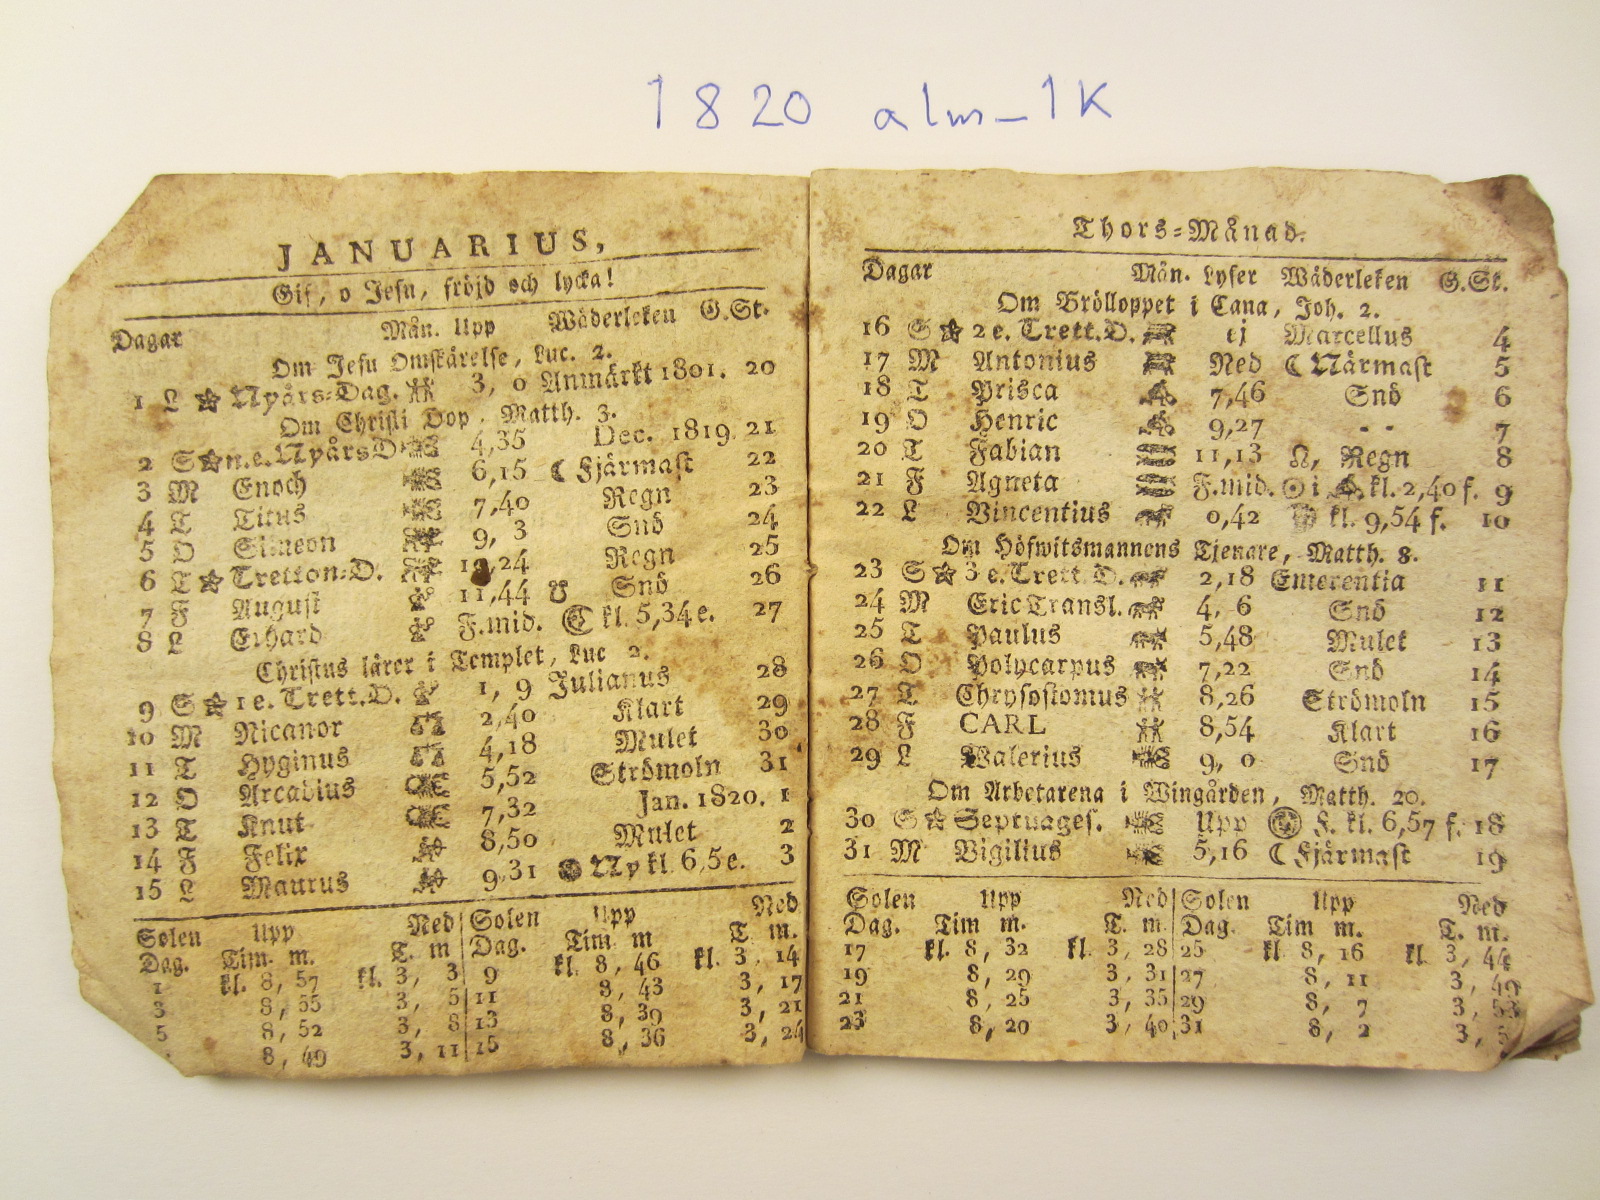 1820 alm_1K
JANUARIUS,
Gif, o Jesu, fröjd och lycka!
Dagar Mån. Upp Wäderleken G.St.
Om Jesu Omskärelse, Luc. 2.
1 L Nyårs-Dag. 3, 0 Anmärkt 1801. 20
Om Christi Dop, Matth. 3.
2 S n.e.NyårsD 4,35 Dec. 1819. 21
3 M Enoch 6,15 ☾ Fjärmast 22
4 T Titus 7,40 Regn 23
5 O Simeon 9, 3 Snö 24
6 T Tretton-D. ,24 Regn 25
7 F August 11,44 ☋ Snö 26
8 L Erhard F.mid. ☾ kl. 5,34 e. 27
Christus lärer i Templet, Luc 2.
9 S 1 e. Trett.D. 1, 9 Julianus 28
10 M Nicanor 2,40 Klart 29
11 T Hyginus 4,18 Mulet 30
12 O Arcadius 5,52 Strömoln 31
13 T Knut 7,32 Jan. 1820. 1
14 F Felix 8,50 Mulet 2
15 L Maurus 9,31 Ny kl. 6,5 e. 3
Solen Upp Ned Solen Upp Ned
Dag. Tim. m. T. m Dag. Tim m T. m.
1 kl. 8, 57 kl. 3, 3 9 kl. 8, 46 kl. 3, 14
3 8, 55 3, 5 11 8, 43 3, 17
5 8, 52 3, 8 13 8, 39 3, 21
8, 49 3, 11 15 8, 36 3, 24
Thors-Månad.
Dagar Mån. Lyser Wäderleken G.St.
Om Brölloppet i Cana, Joh. 2.
16 S 2 e. Trett.D. ej Marcellus 4
17 M Antonius Ned ☾ Närmast 5
18 T Prisca 7,46 Snö 6
19 O Henric 9,27 - - 7
20 T Fabian 11,13 ☊, Regn 8
21 F Agneta F.mid. ☉ i ♒ kl. 2,40 f. 9
22 L Vincentius 0,42 kl. 9,54 f. 10
Om Höfwitsmannens Tjenare, Matth. 8.
23 S 3 e. Trett.D. 2,18 Emerentia 11
24 M Eric Transl. 4, 6 Snö 12
25 T Paulus 5,48 Mulet 13
26 O Polycarpus 7,22 Snö 14
27 T Chrysostomus 8,26 Strömoln 15
28 F CARL 8,54 Klart 16
29 L Walerius 9, 0 Snö 17
Om Arbetarena i Wingården, Matth. 20.
30 S Septuages. Upp F. kl. 6,57 f. 18
31 M Vigilius 5,16 ☾ Fjärmast 19
Solen Upp Ned Solen Upp Ned
Dag. Tim m. T. m. Dag. Tim m. T. m.
17 kl. 8, 32 kl. 3, 28 25 kl. 8, 16 kl. 3, 44
19 8, 29 3, 31 27 8, 11 3, 49
21 8, 25 3, 35 29 8, 7 3, 53
23 8, 20 3, 40 31 8, 2 3, 5